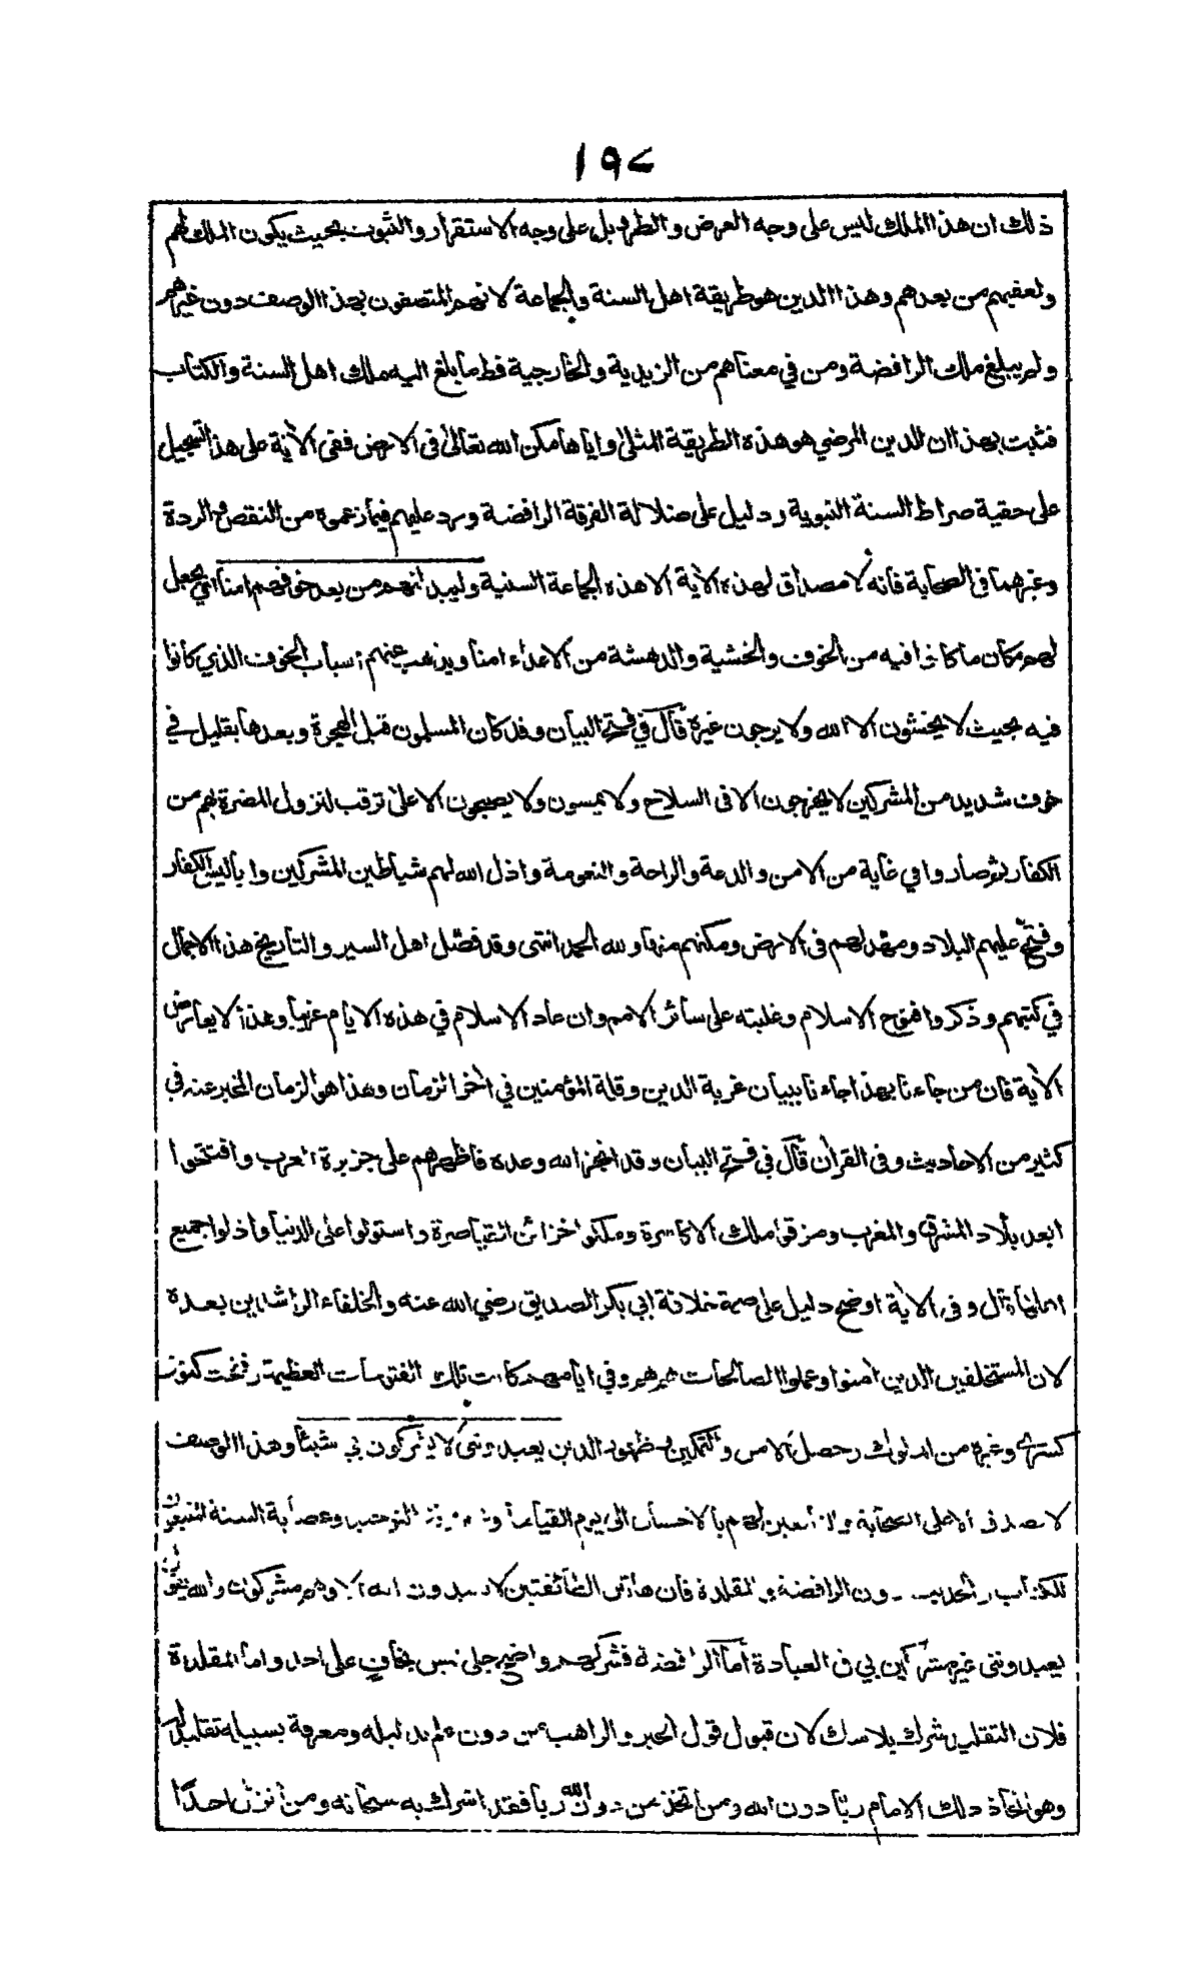 ١٩٧
ذلك ان هذا الملك ليس على وجه العرض والطرد بل على وجه الاستقرار والثبوت بحيث يكون الملك لهم
ولعقبهم من بعدهم وهذا الدين هو طريقة اهل السنة والجماعة لانهم المتصفون بهذا الوصف دون غيرهم
ولم يبلغ ملك الرافضة ومن في معناهم من الزيدية والخارجية قط ما بلغ اليه ملك اهل السنة والكتاب
فثبت بهذا ان الدين المرضي هو هذه الطريقة المثلى واياها مكن الله تعالى في الارض ففي الآية على هذا التسجيل
على حقية صراط السنة النبوية ودليل على ضلالة الفرقة الرافضة ورد عليهم فيما زعموه من النقص والردة
وغيرهما في الصحابة فانه لا مصداق لهذه الآية الا هذه الجماعة السنية وليبدلنهم من بعد خوفهم امنا اي يجعل
لهم مكان ما كانوا فيه من الخوف والخشية والدهشة من الاعداء امنا ويذهب عنهم اسباب الخوف الذي كانوا
فيه بحيث لا يخشون الا الله ولا يرجون غيره قال في فتح البيان وقد كان المسلمون قبل الهجرة وبعدها بقليل في
خوف شديد من المشركين لا يخرجون الا في السلاح ولا يمسون ولا يصبحون الا على ترقب لنزول المضرة بهم من
الكفار ثم صاروا في غاية من الامن والدعة والراحة والنعومة واذل الله لهم شياطين المشركين واباليس الكفار
وفتح عليهم البلاد ومهد لهم في الارض ومكنهم منها ولله الحمد انتهى وقد فصل اهل السير والتاريخ هذا الاجمال
في كتبهم وذكروا فتوح الاسلام وغلبته على سائر الامم وان عاد الاسلام في هذه الايام غريبا وهذا لا يعارض
الآية فان من جاءنا بهذا جاءنا ببيان غربة الدين وقلة المؤمنين في آخر الزمان وهذا هو الزمان المخبر عنه في
كثير من الاحاديث وفي القرآن قال في فتح البيان وقد انجز الله وعده فاظهرهم على جزيرة العرب وافتتحوا
ابعد بلاد المشرق والمغرب ومزقوا ملك الاكاسرة وملكوا خزائن القياصرة واستولوا على الدنيا واذلوا جميع
اهلها قال وفي الآية اوضح دليل على صحة خلافة ابي بكر الصديق رضي الله عنه والخلفاء الراشدين بعده
لان المستخلفين الذين امنوا وعملوا الصالحات هم هم وفي ايامهم كانت تلك الفتوحات العظيمة وفتحت كنوز
كسرى وغيره من الملوك وحصل الامن والتمكين وظهور الدين يعبدونني لا يشركون بي شيئا وهذا الوصف
لا يصدق الا على الصحابة والتابعين لهم بالاحسان الى يوم القيامة وهم التوحيد وعصابة السنة المتبعون
للكتاب والحديث دون الرافضة والمقلدة فان هاتين الطائفتين لا يعبدون الله الا وهم مشركون والله يقول
يعبدونني غير مشركين بي في العبادة أما الرافضة فشركهم واضح جلي ليس بخاف على احد واما المقلدة
فلان التقليد شرك بلا شك لان قبول قول الحبر والراهب من دون علم بدليله ومعرفة بسبيله تقليد له
وهو اتخاذ ذلك الامام ربا دون الله ومن اتخذ من دون الله ربا فقد اشرك به سبحانه ومن انزل احدا